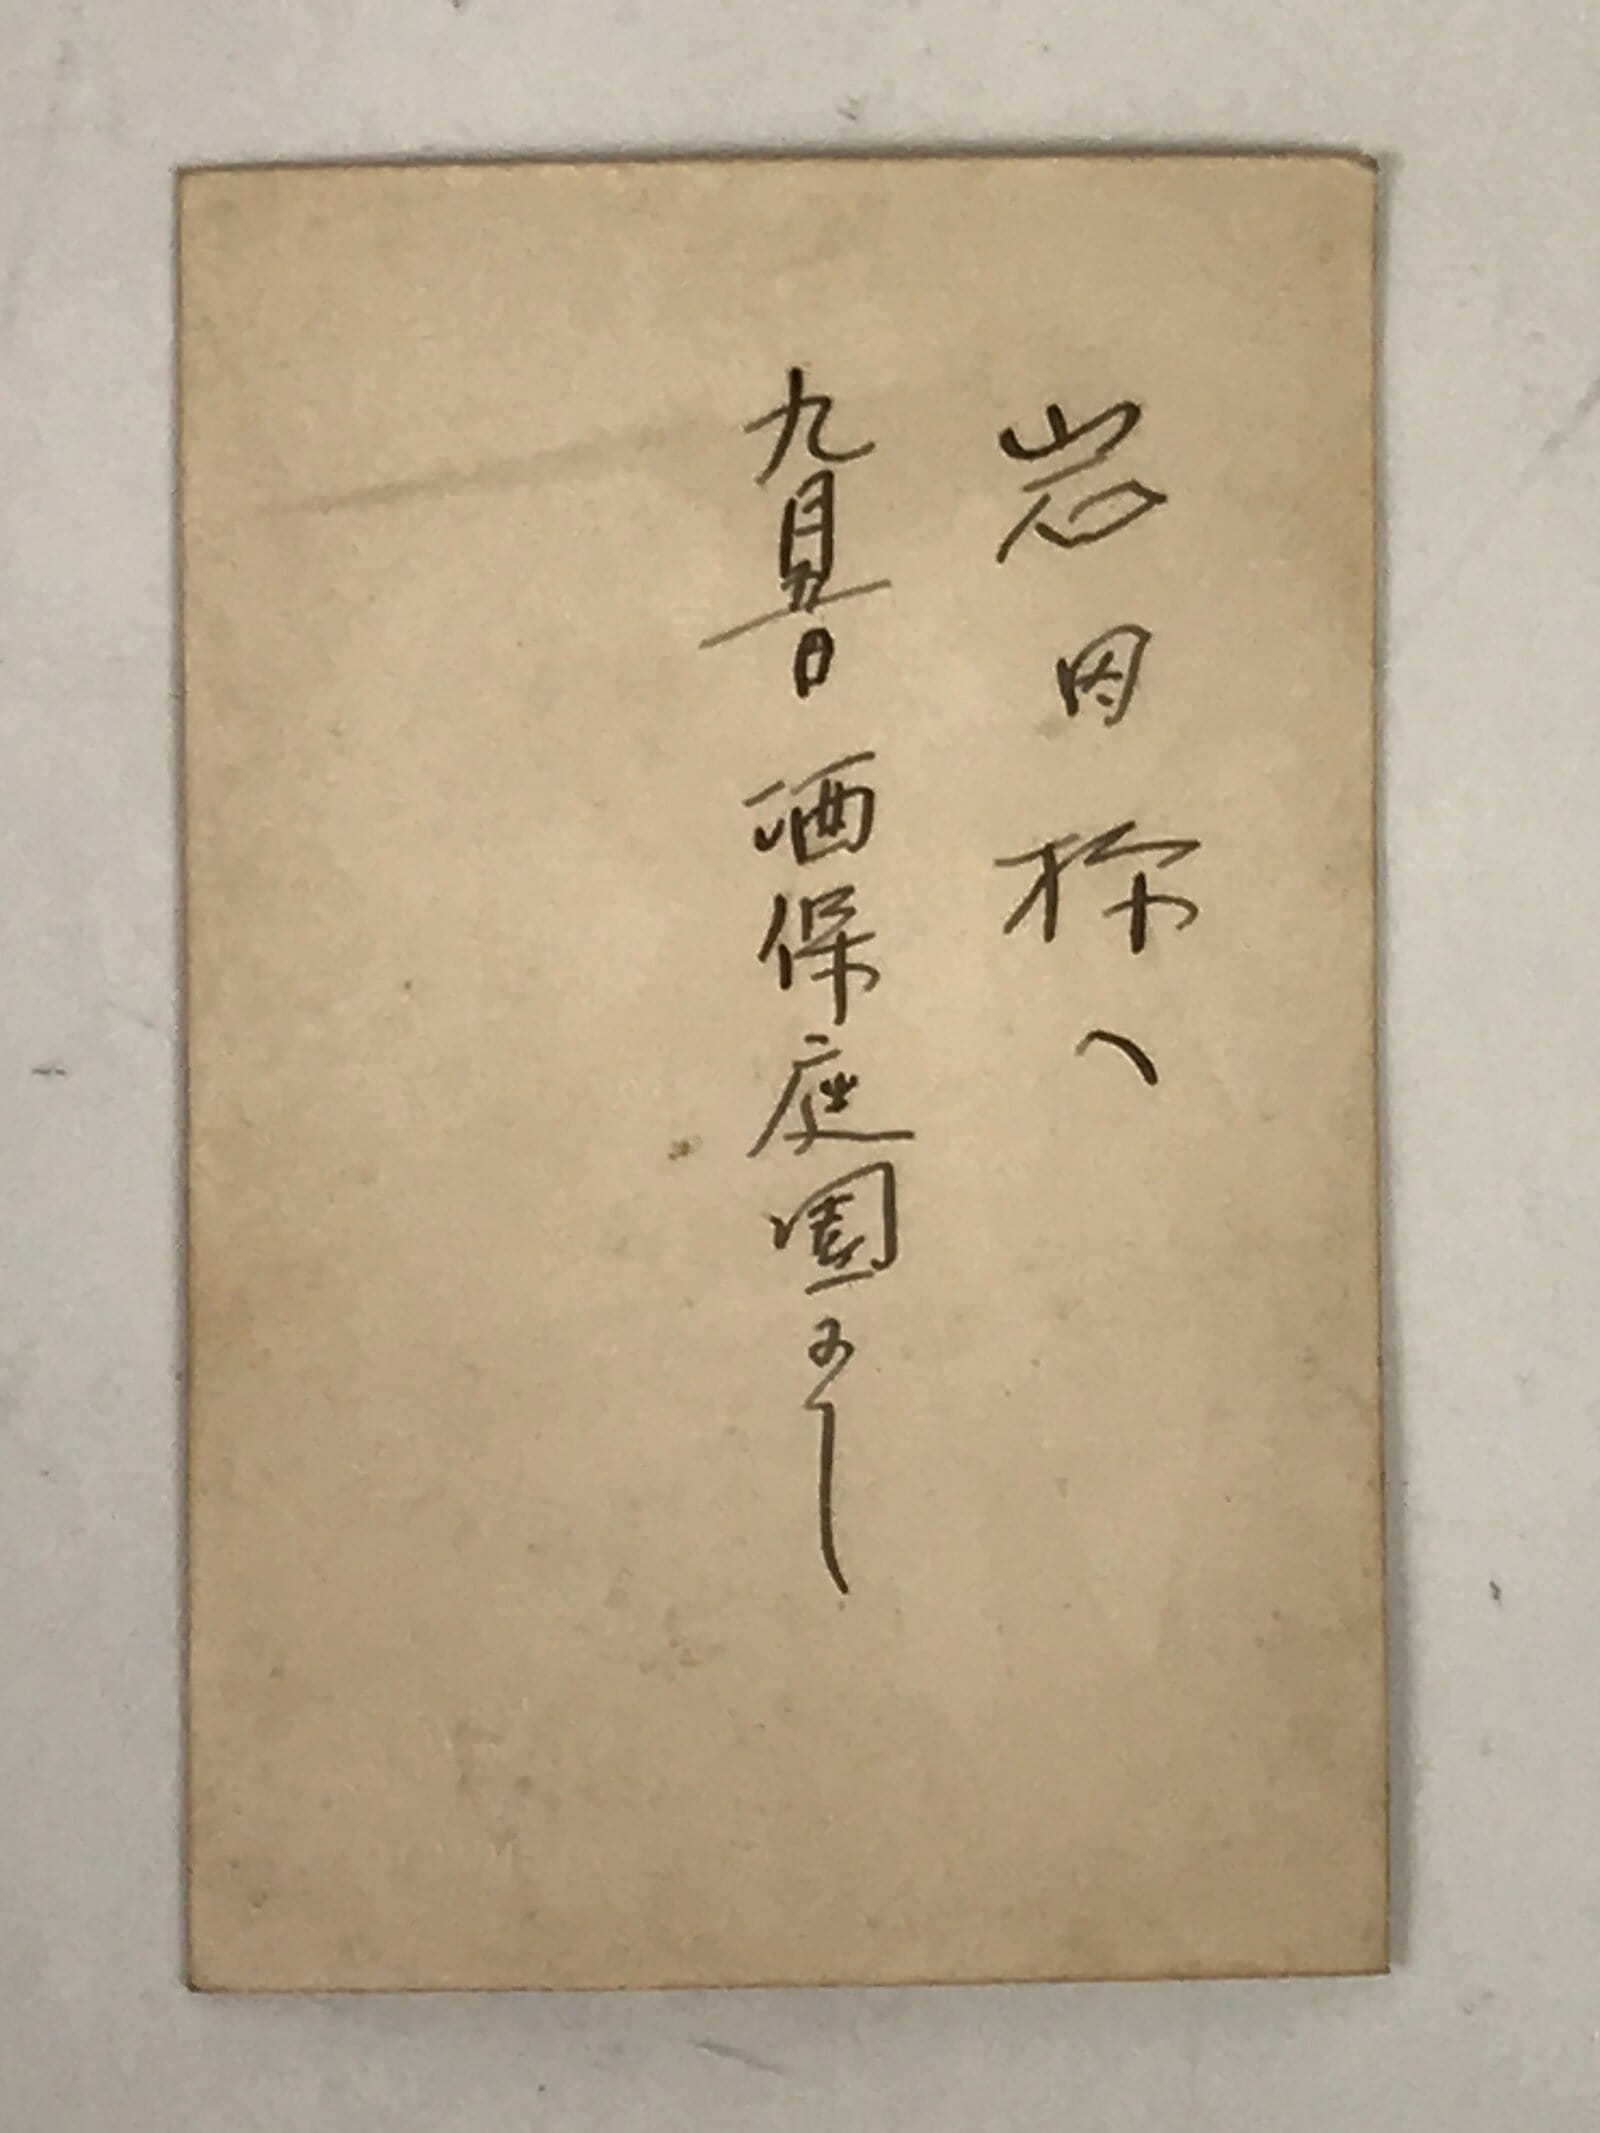 岩田様へ
九月五日 酒保庭園にし